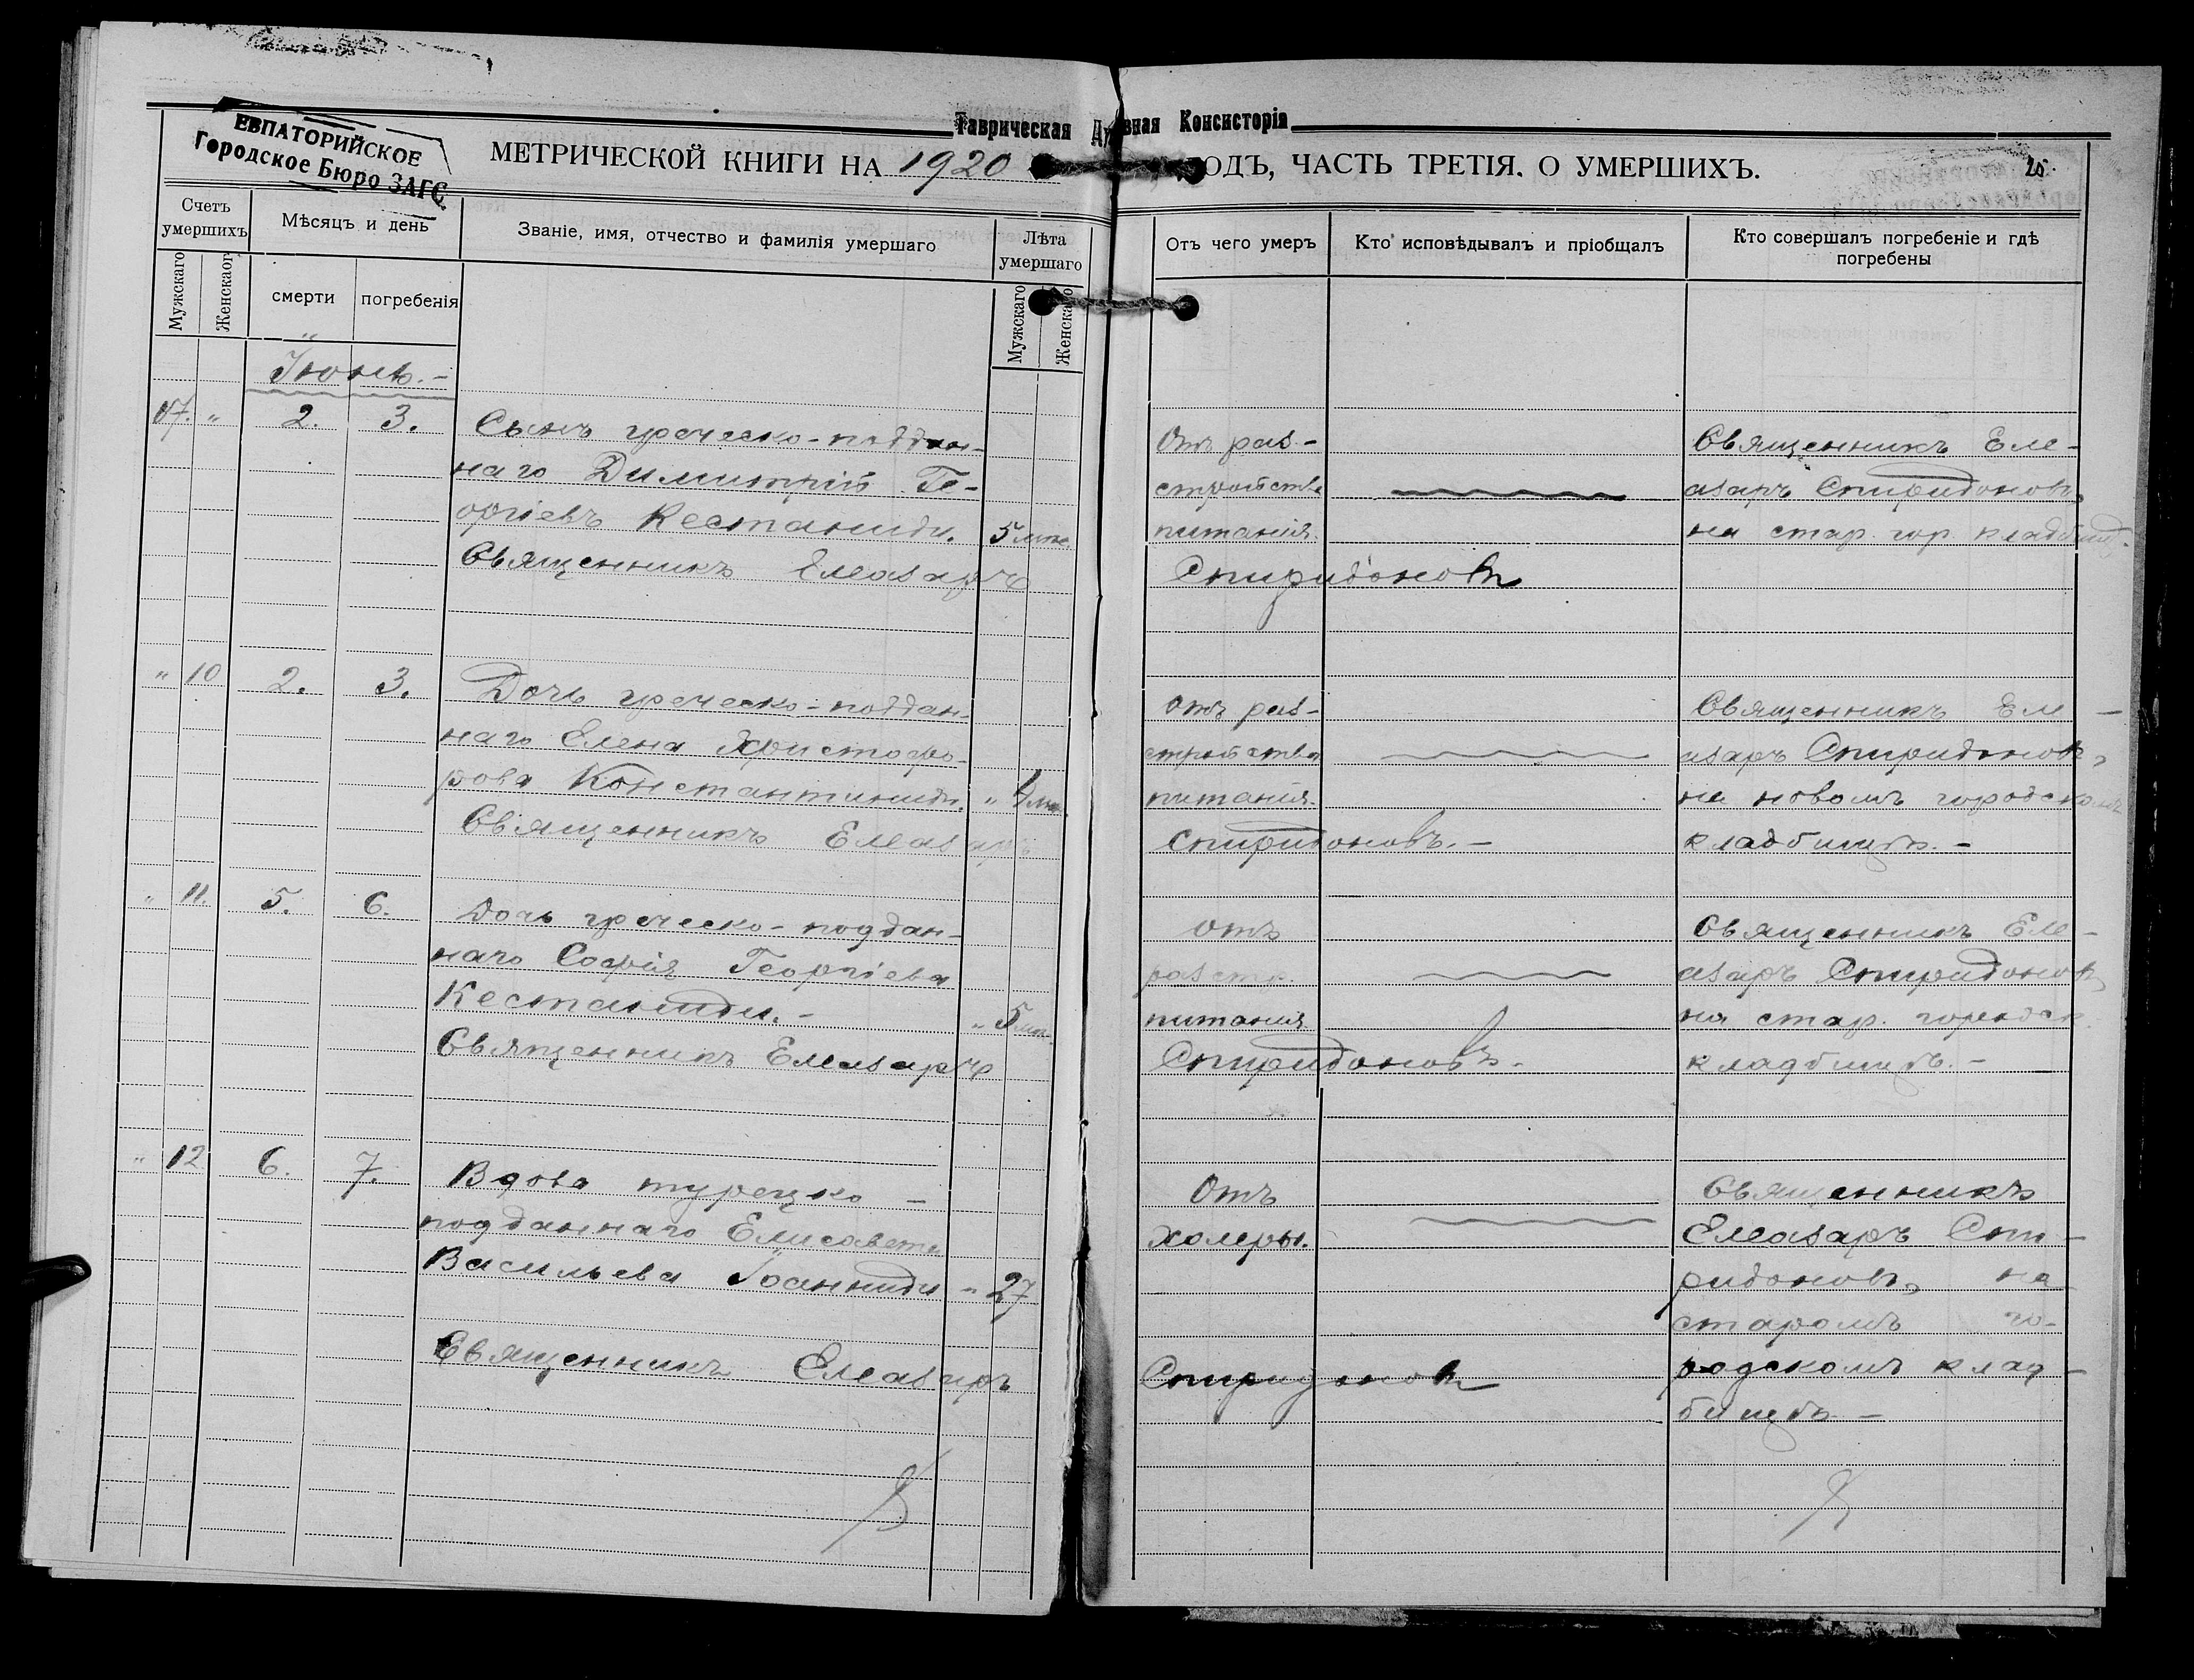 Таврическая Духовная Консисторія
ЕВПАТОРИЙСКОЕ
Городское Бюро ЗАГС.
МЕТРИЧЕСКОЙ КНИГИ НА 1920 ГОДЪ, ЧАСТЬ ТРЕТІЯ. О УМЕРШИХЪ.
25.
Счетъ умершихъ
Мѣсяцъ и день
Званіе, имя, отчество и фамилія умершаго
Лѣта умершаго
Отъ чего умеръ
Кто исповѣдывалъ и пріобщалъ
Кто совершалъ погребеніе и гдѣ
погребены
Мужскаго
Женскаог
смерти
погребенія
Мужскаго
Женскаго
Іюнь.-
17. " 2. 3.
Сынъ греческо-поддан-
наго Димитрій Ге-
оргіевъ Кестаниди. 5 лѣтъ
Священникъ Елеазаръ
Отъ раз-
стройства
питанія.
Спиридоновъ
Священникъ Еле-
азаръ Спиридоновъ,
на стар. гор. кладбищѣ.
" 10 2. 3.
Дочь греческо-поддан-
наго Елена Христофо-
рова Константиниди. "
Священникъ Елеазаръ
Отъ раз-
стройства
питанія.
Спиридоновъ.-
Священникъ Еле-
азаръ Спиридоновъ,
на новомъ городскомъ
кладбищѣ.-
" 11. 5. 6.
Дочь греческо-поддан-
наго Софія Георгіева
Кестаниди.- " 5
Священникъ Елеазаръ
Отъ
разстр.
питанія
Спиридоновъ.-
Священникъ Еле-
азаръ Спиридоновъ,
на стар. городск.
кладбищѣ.-
" 12 6. 7.
Вдова турецко-
подданнаго Елисавета
Васильева Іоанниди " 27
Священникъ Елеазаръ
Отъ
холеры.
Спиридоновъ
Священникъ
Елеазаръ Спи-
ридоновъ, на
старомъ го-
родскомъ клад-
бищѣ-